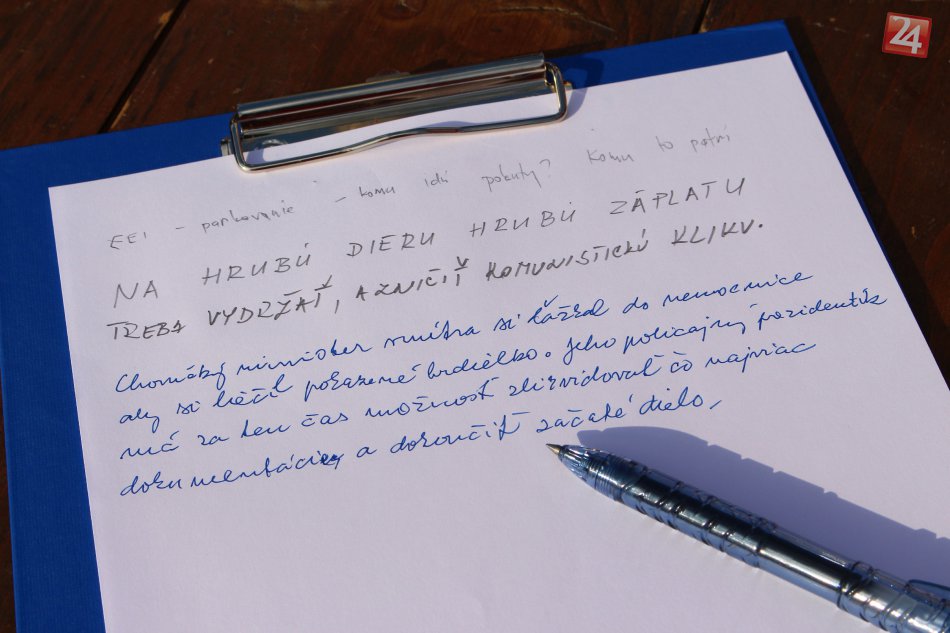 24
EEI - parkovanie - komu idú pokuty? Komu to patrí
NA HRUBÚ DIERU HRUBÚ ZÁPLATU
TREBA VYDRŽAŤ, A ZNIČIŤ KOMUNISTICKÚ KLIKU.
minister vnútra si ľážel do nemocnice
aby si liečil pokazené srdiečko. Jeho policajný prezident
má za ten čas možnosť zlikvidovať čo najviac
dokumentácie a dokončiť začaté dielo,